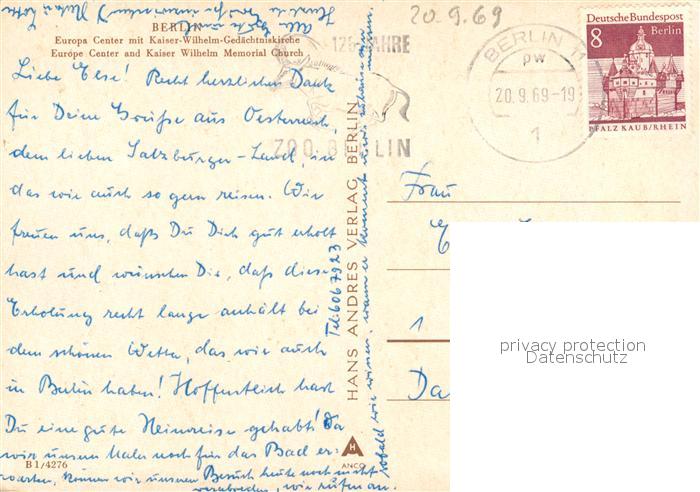 20.9.69
BERLIN
Europa Center mit Kaiser-Wilhelm-Gedächtniskirche
Europe Center and Kaiser Wilhelm Memorial Church
Liebe Else! Recht herzlichen Dank
für Deine Grüße aus Oesterreich,
dem lieben Salzburger-Land, in
das wir auch so gern reisen. Wir
freuen uns, daß Du Dich gut erholt
hast und wünschen Dir, daß diese
Erholung recht lange anhält bei
dem schönen Wetter, das wir auch
in Berlin haben! Hoffentlich hast
Du eine gute Heimreise gehabt! Da
wir unseren Maler noch für das Bad er-
warten, können wir unseren Besuch heute noch nicht
verabreden, wir rufen an
sobald wir wissen, wann er kommt und wir zuhause sind.
Alles
Herzliche
Tel: 6067923
HANS ANDRES VERLAG BERLIN
B 1/4276
ANCO
125 JAHRE
ZOO BERLIN
BERLIN 11
pw
20.9.69-19
1
Deutsche Bundespost
8
Berlin
PFALZ KAUB/RHEIN
Frau
1
privacy protection
Datenschutz